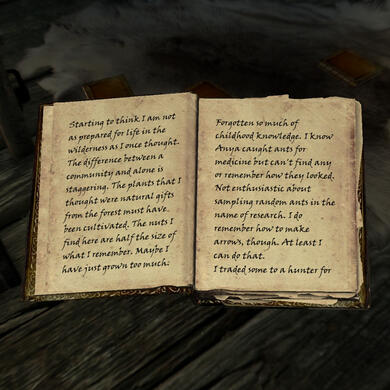 Starting to think I am not
as prepared for life in the
wilderness as I once thought.
The difference between a
community and alone is
staggering. The plants that I
thought were natural gifts
from the forest must have
been cultivated. The nuts I
find here are half the size of
what I remember. Maybe I
have just grown too much.
Forgotten so much of
childhood knowledge. I know
Anya caught ants for
medicine but can't find any
or remember how they looked.
Not enthusiastic about
sampling random ants in the
name of research. I do
remember how to make
arrows, though. At least I
can do that.
I traded some to a hunter for